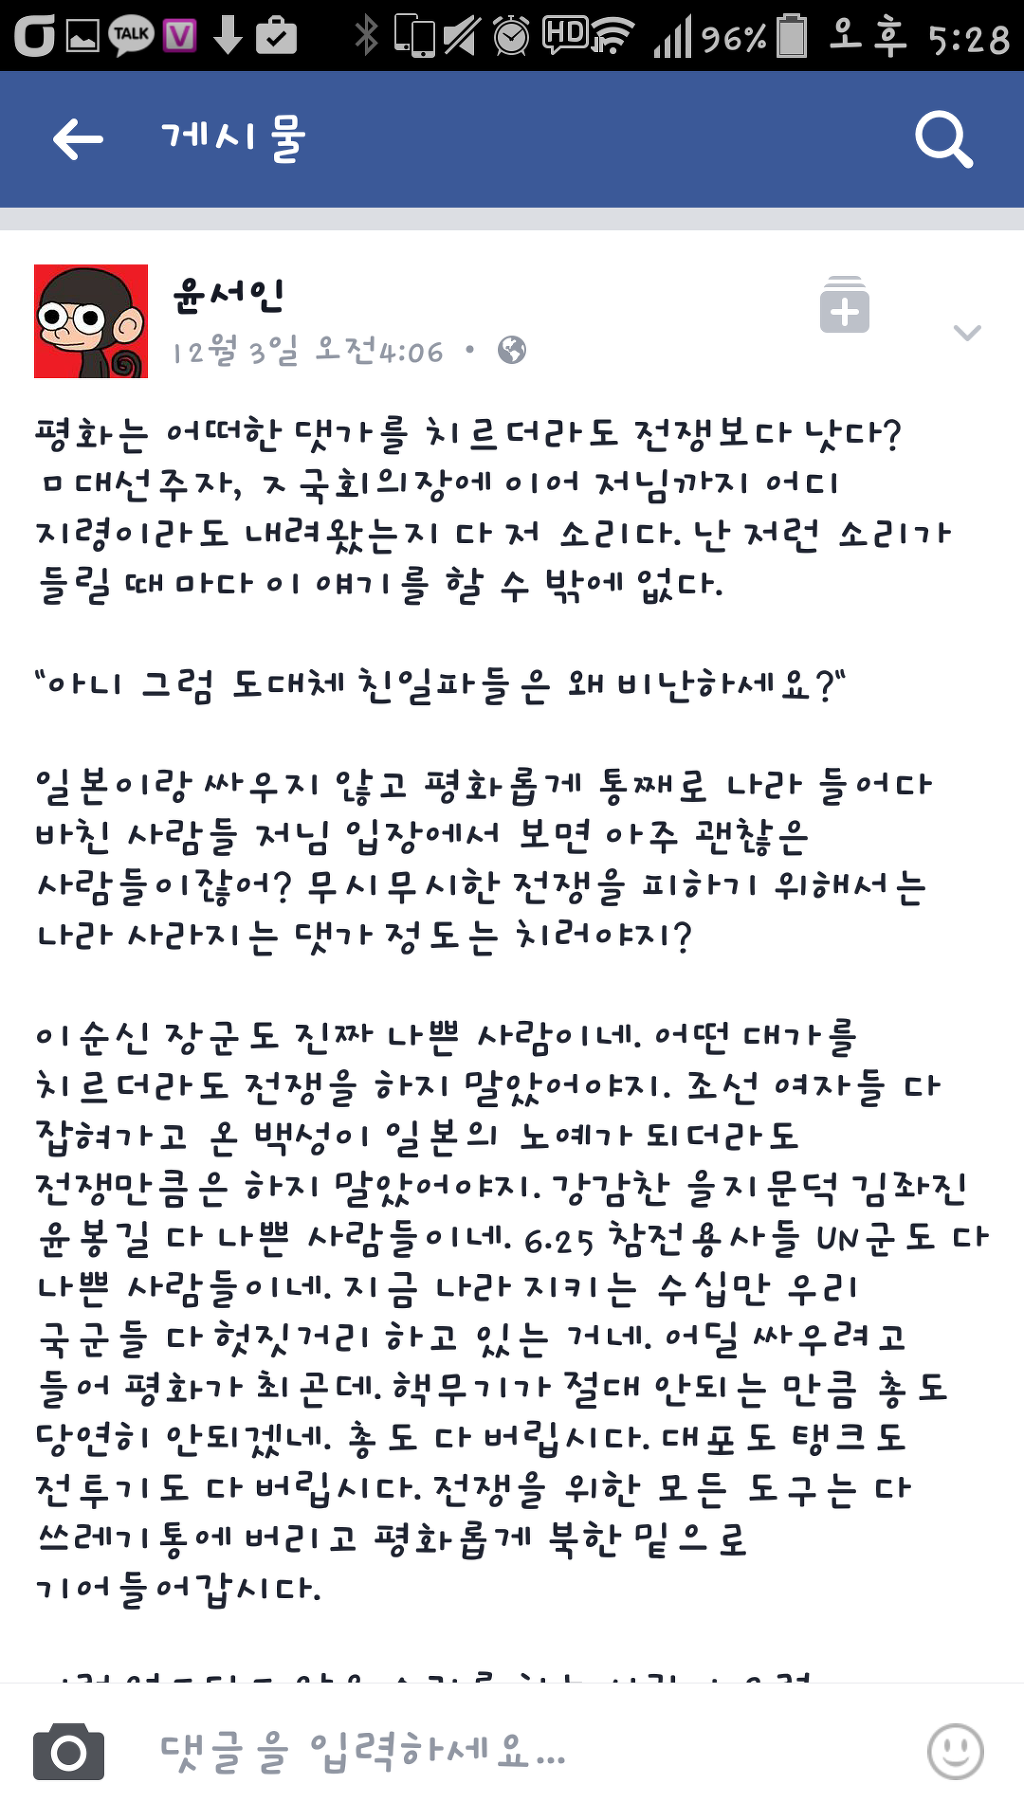 TALK
V
HD
96%
오후 5:28
게시물
윤서인
12월 3일 오전4:06
평화는 어떠한 댓가를 치르더라도 전쟁보다 낫다?
ㅁ대선주자, ㅈ국회의장에 이어 저님까지 어디
지령이라도 내려왔는지 다 저 소리다. 난 저런 소리가
들릴 때 마다 이 얘기를 할 수 밖에 없다.
"아니 그럼 도대체 친일파들은 왜 비난하세요?"
일본이랑 싸우지 않고 평화롭게 통째로 나라 들어다
바친 사람들 저님 입장에서 보면 아주 괜찮은
사람들이잖어? 무시무시한 전쟁을 피하기 위해서는
나라 사라지는 댓가 정도는 치러야지?
이순신 장군도 진짜 나쁜 사람이네. 어떤 대가를
치르더라도 전쟁을 하지 말았어야지. 조선 여자들 다
잡혀가고 온 백성이 일본의 노예가 되더라도
전쟁만큼은 하지 말았어야지. 강감찬 을지문덕 김좌진
윤봉길 다 나쁜 사람들이네. 6.25 참전용사들 UN군도 다
나쁜 사람들이네. 지금 나라 지키는 수십만 우리
국군들 다 헛짓거리 하고 있는 거네. 어딜 싸우려고
들어 평화가 최곤데. 핵무기가 절대 안되는 만큼 총도
당연히 안되겠네. 총도 다 버립시다. 대포도 탱크도
전투기도 다 버립시다. 전쟁을 위한 모든 도구는 다
쓰레기통에 버리고 평화롭게 북한 밑으로
기어들어갑시다.
댓글을 입력하세요...